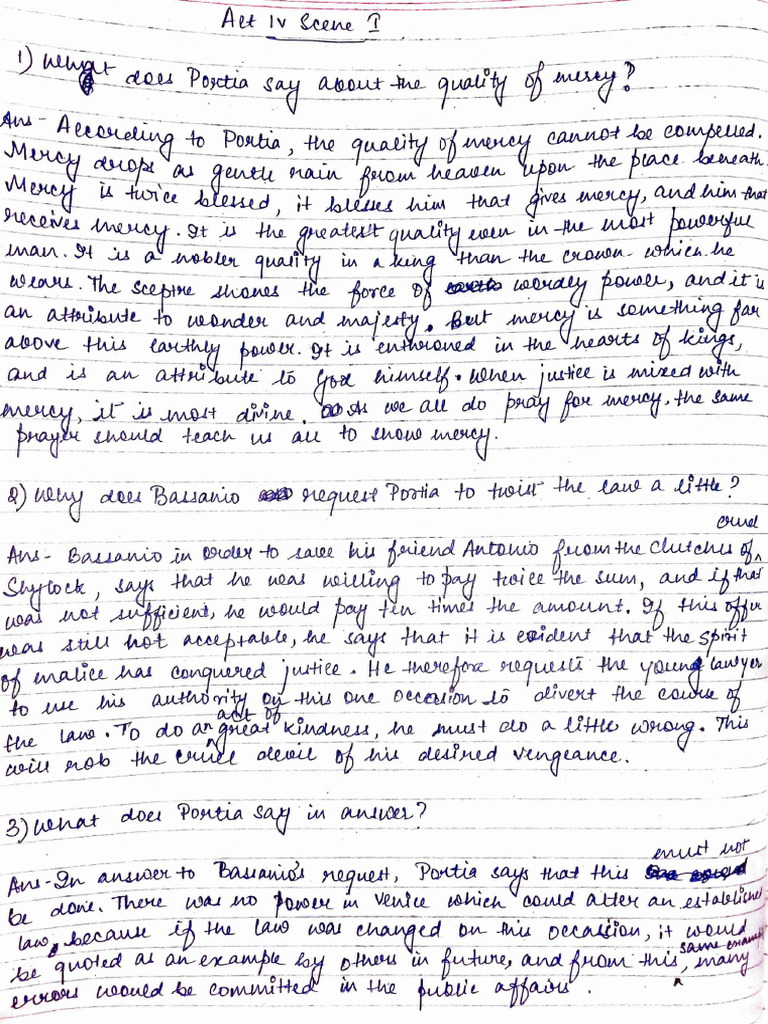 Act IV Scene I
1) What does Portia say about the quality of mercy?
Ans - According to Portia, the quality of mercy cannot be compelled.
Mercy drops as gentle rain from heaven upon the place beneath.
Mercy is twice blessed, it blesses him that gives mercy, and him that
receives mercy. It is the greatest quality even in the most powerful
man. It is a nobler quality in a king than the crown which he
wears. The sceptre shows the force of wordly power, and it is
an attribute to wonder and majesty. But mercy is something far
above this earthly power. It is enthroned in the hearts of kings,
and is an attribute to God himself. When justice is mixed with
mercy, it is most divine. As we all do pray for mercy, the same
prayer should teach us all to show mercy.
2) Why does Bassanio request Portia to twist the law a little?
cruel
Ans - Bassanio in order to save his friend Antonio from the clutches of
Shylock, says that he was willing to pay twice the sum, and if that
was not sufficient, he would pay ten times the amount. If this offer
was still not acceptable, he says that it is evident that the spirit
of malice has conquered justice. He therefore requests the young lawyer
to use his authority on this one occasion to divert the course of
act of
the law. To do a great kindness, he must do a little wrong. This
will rob the cruel devil of his desired vengeance.
3) What does Portia say in answer?
must not
Ans - In answer to Bassanio's request, Portia says that this
be done. There was no power in Venice which could alter an established
law, because if the law was changed on this occasion, it would
same example
be quoted as an example by others in future, and from this, many
errors would be committed in the public affairs.